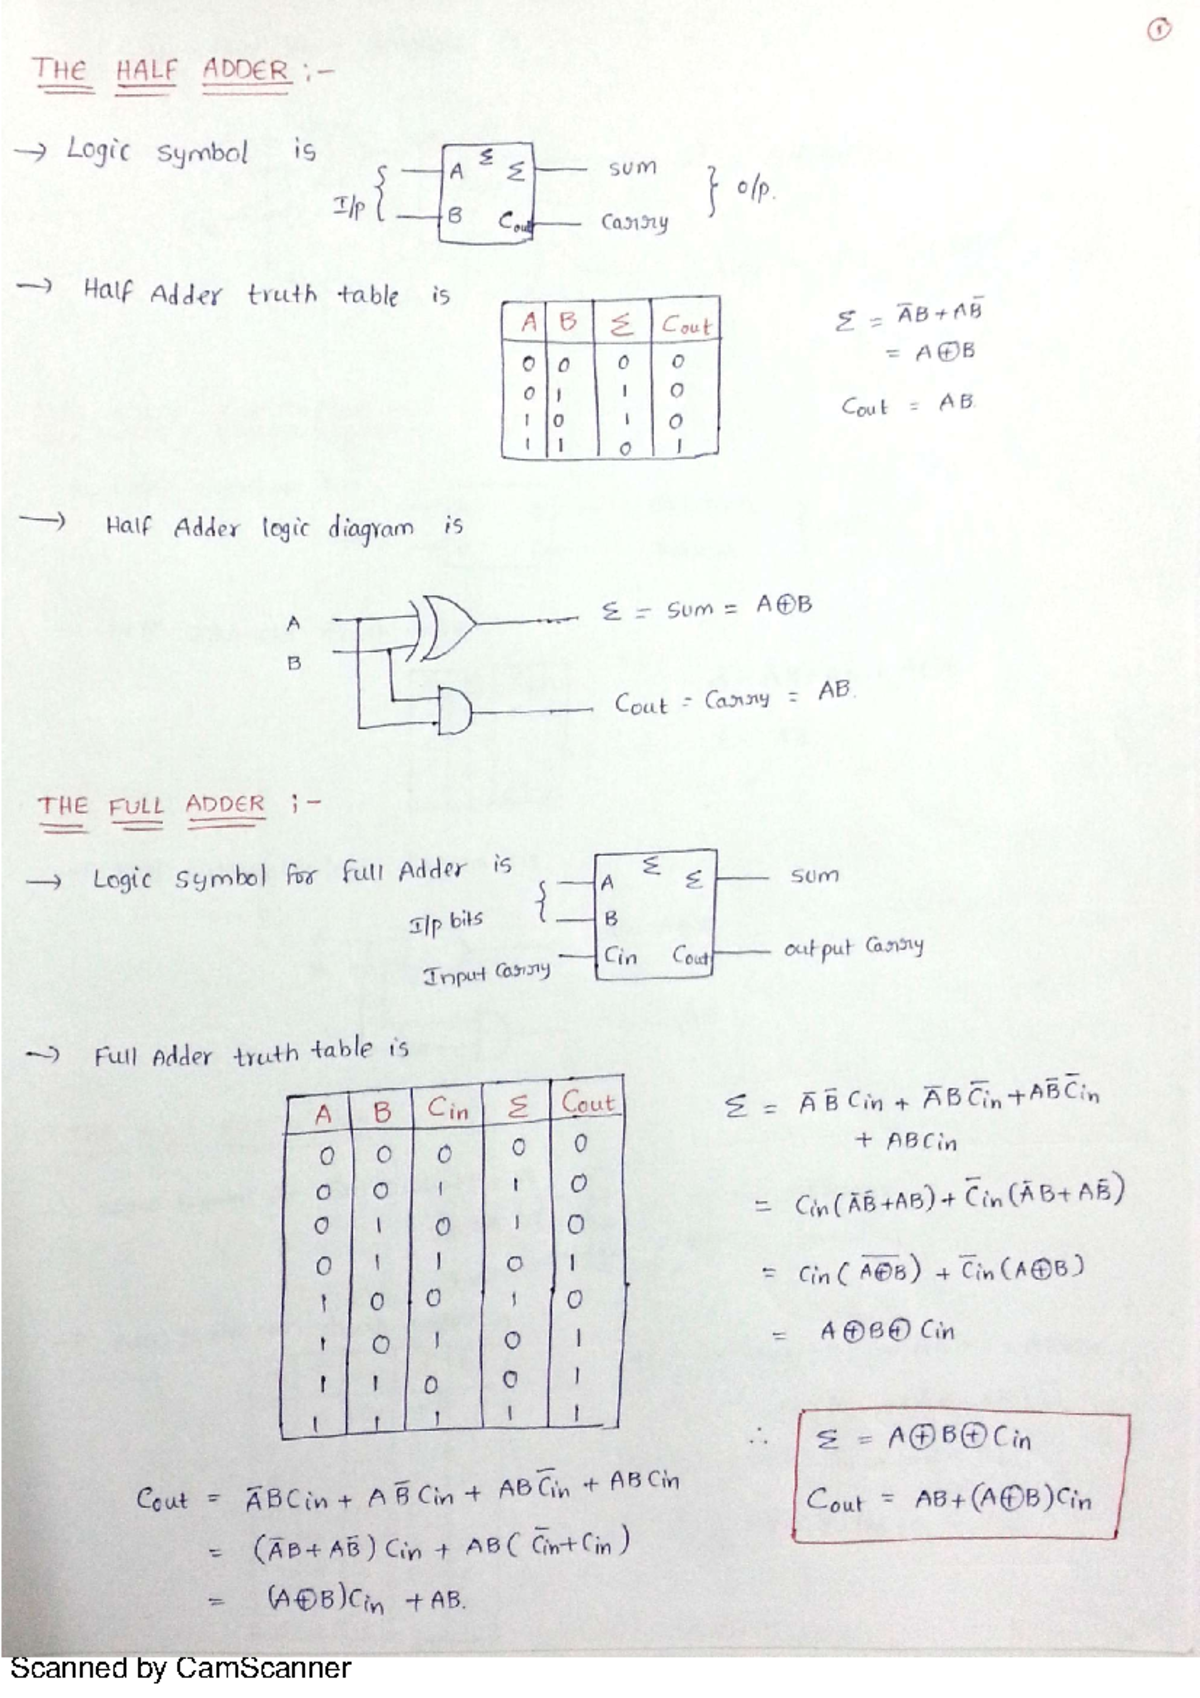 ①
THE HALF ADDER :-
→ Logic symbol is
I/p { A B Σ Σ Cout sum Carry } o/p.
→ Half Adder truth table is
A B Σ Cout
0 0 0 0
0 1 1 0
1 0 1 0
1 1 0 1
Σ = A̅B + AB̅
= A⊕B
Cout = AB.
→ Half Adder logic diagram is
A
B
Σ = Sum = A⊕B
Cout = Carry = AB.
THE FULL ADDER :-
→ Logic symbol for full Adder is
I/p bits { A B
Input Carry Cin
Σ Σ sum
Cout output Carry
→ Full Adder truth table is
A B Cin Σ Cout
0 0 0 0 0
0 0 1 1 0
0 1 0 1 0
0 1 1 0 1
1 0 0 1 0
1 0 1 0 1
1 1 0 0 1
1 1 1 1 1
Σ = A̅ B̅ Cin + A̅ B C̅in + A B̅ C̅in
+ ABCin
= Cin(A̅B̅ + AB) + C̅in(A̅B + AB̅)
= Cin( A̅⊕̅B̅ ) + C̅in(A⊕B)
= A⊕B⊕Cin
∴ Σ = A⊕B⊕Cin
Cout = AB+(A⊕B)Cin
Cout = A̅BCin + AB̅Cin + ABC̅in + ABCin
= (A̅B + AB̅) Cin + AB( C̅in+Cin )
= (A⊕B)Cin + AB.
Scanned by CamScanner